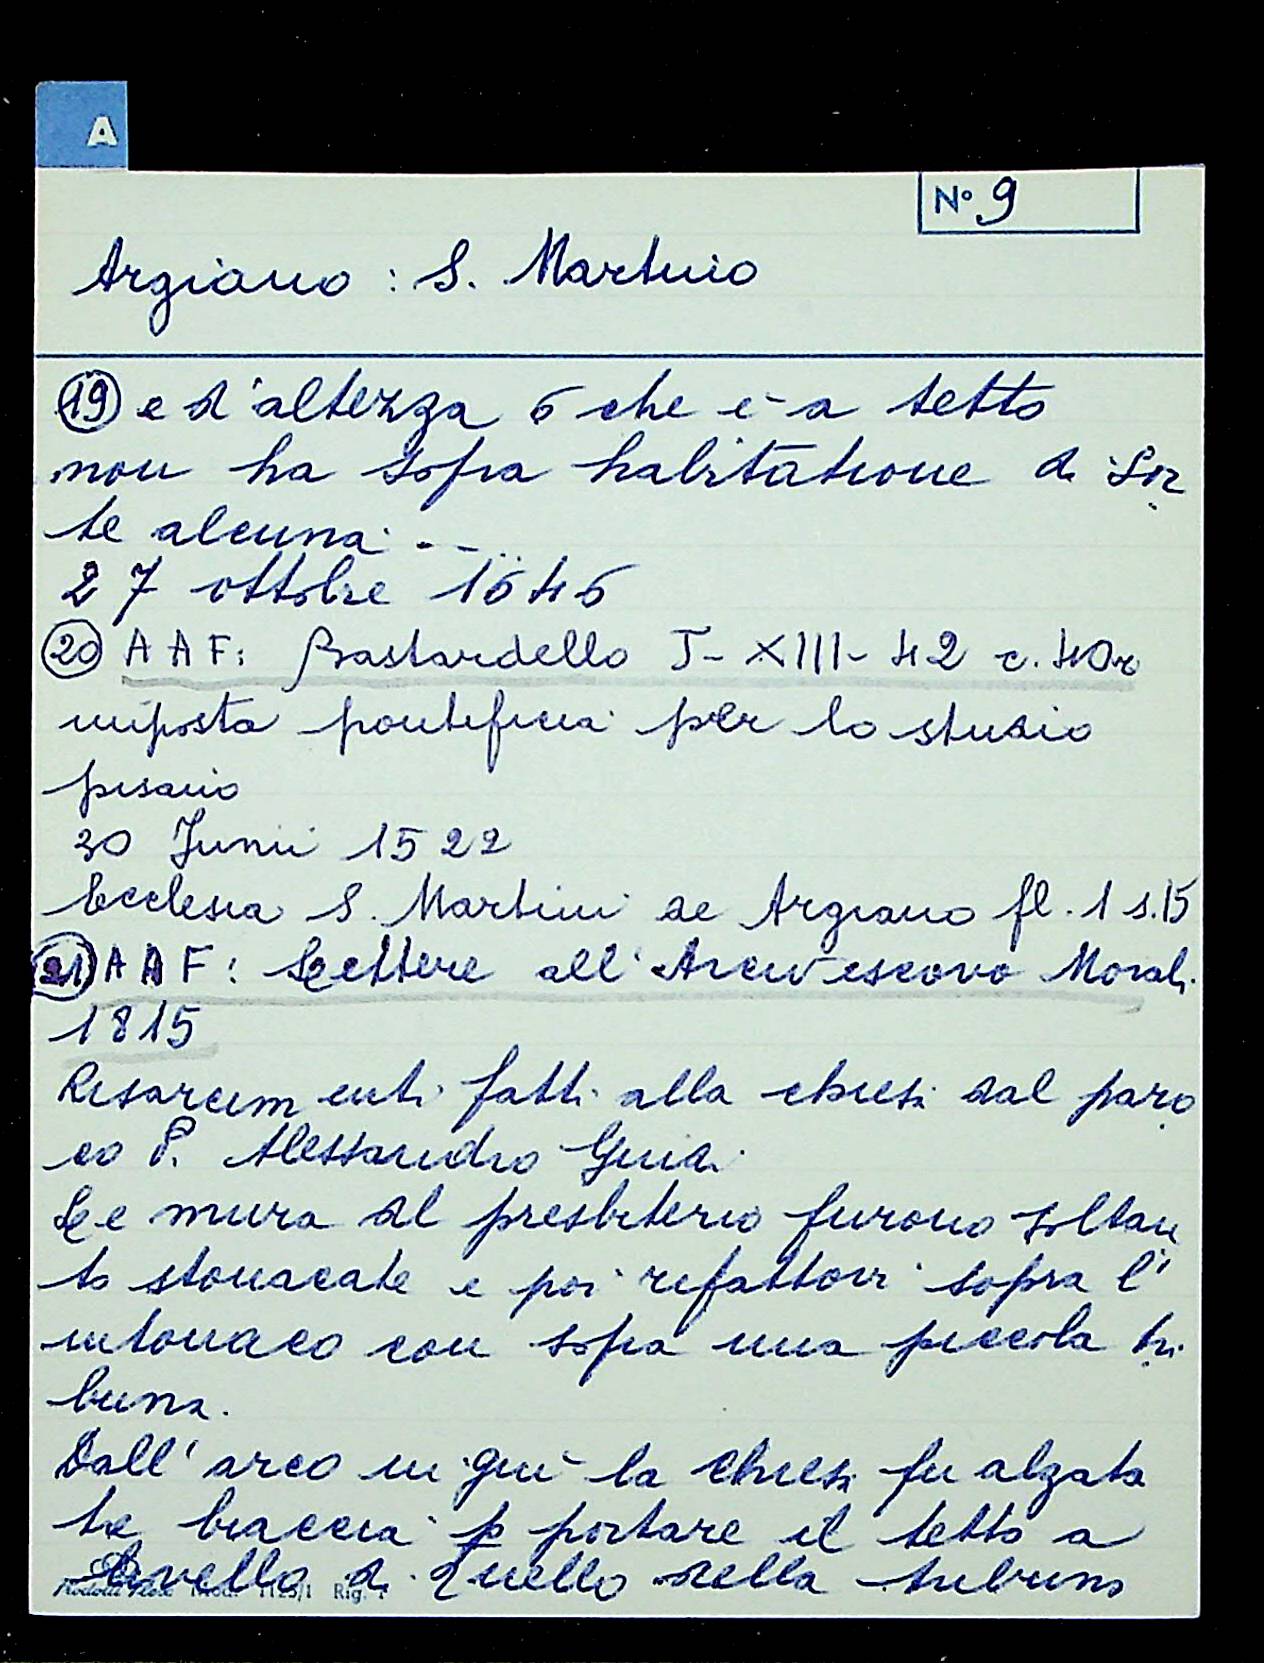 A
N° 9
Argiano : S. Martino
19 e d'altezza 6 che è a tetto
non ha sopra habitatione di sor
te alcuna. ...
27 ottobre 1646
20 AAF: Bastardello J-XIII-42 c. 40r
imposta pontificia per lo studio
pisano
30 Junii 1522
Ecclesia S. Martini de Argiano fl. 1 s.15
21 AAF: Lettere all'Arcivescovo Morali
1815
Risarcimenti fatti alla chiesa dal paro
co P. Alessandro Guidi
Le mura del presbiterio furono soltan
to stonacate e poi rifattovi sopra l'
intonaco con sopra una piccola tri
buna.
Dall'arco in giù la chiesa fu alzata
tre braccia p portare il tetto a
livello di quello della tribuna
1125/1 Rig. 7